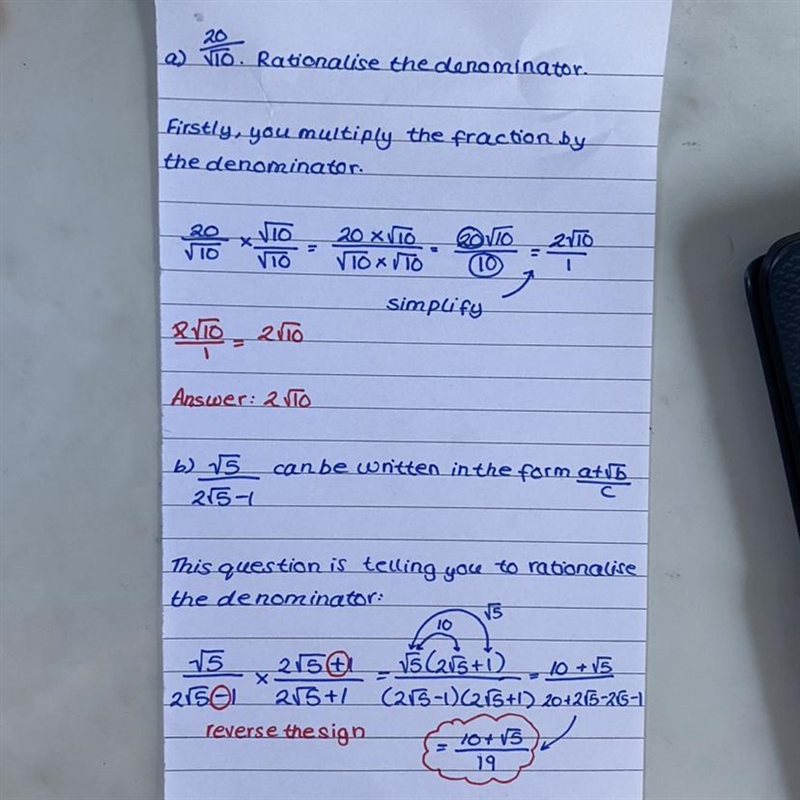 a) 20/√10. Rationalise the denominator.
Firstly, you multiply the fraction by
the denominator.
20/√10 × √10/√10 = 20 × √10/√10 × √10 = 20√10/10 = 2√10/1
simplify
2√10/1 = 2√10
Answer: 2√10
b) √5/2√5-1 can be written in the form a+√b/c
This question is telling you to rationalise
the denominator:
10 √5
√5/2√5-1 × 2√5+1/2√5+1 = √5(2√5+1)/(2√5-1)(2√5+1) = 10+√5/20+2√5-2√5-1
reverse the sign
= 10+√5/19